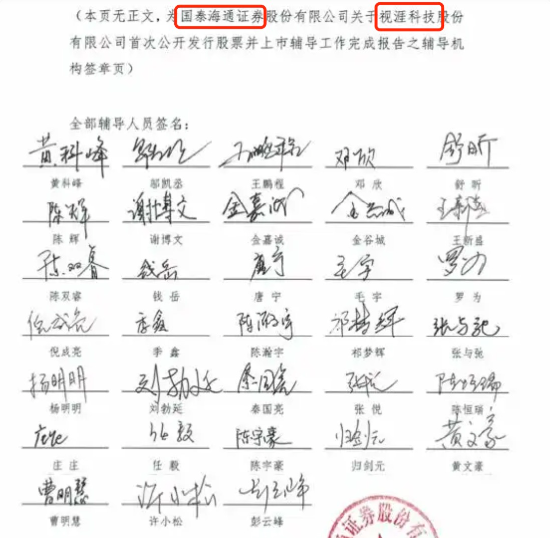 （本页无正文，为国泰海通证券股份有限公司关于视涯科技股份
有限公司首次公开发行股票并上市辅导工作完成报告之辅导机
构签章页）
全部辅导人员签名：
黄科峰
黄科峰 邬凯丞 王鹏程 邓欣 舒昕
陈辉 谢博文 金嘉诚 金谷城 王新盛
陈双睿 钱岳 唐宁 毛宇 罗为
倪成亮 季鑫 陈瀚宇 祁梦辉 张与弛
杨明明 刘勃延 秦国亮 张悦 陈恒瑞
庄庄 任毅 陈宇豪 归剑元 黄文豪
曹明慧 许小松 彭云峰
证券股份有